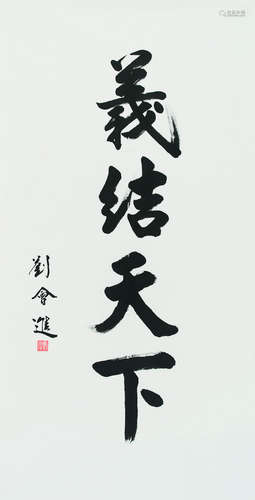 義结天下
劉會進